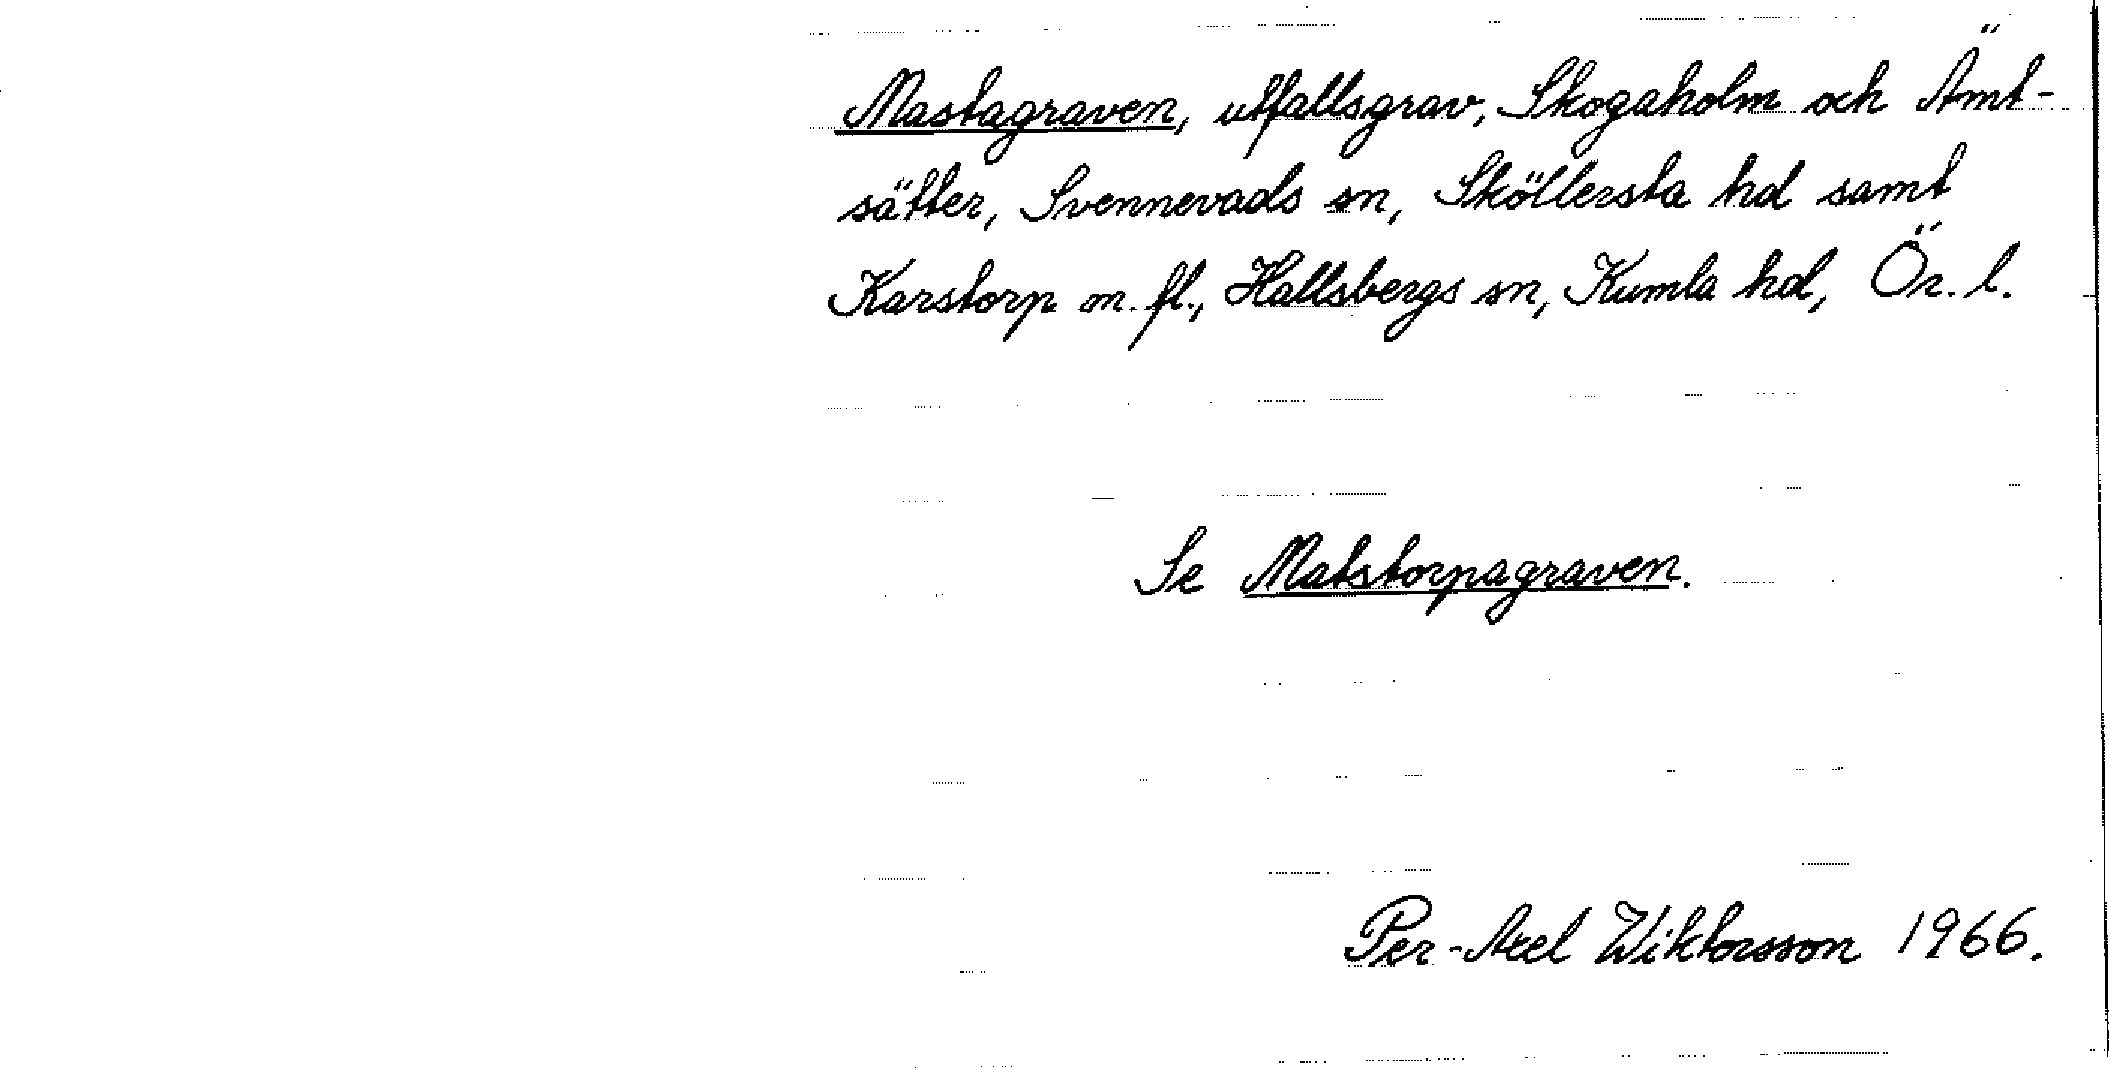 Mastagraven, utfallsgrav, Skogaholm och Ämt-
sätter, Svennevads sn, Sköllersta hd samt
Karstorp m. fl., Hallsbergs sn, Kumla hd, Ör. l.
Se Matstorpagraven.
Per-Axel Wiktorsson 1966.